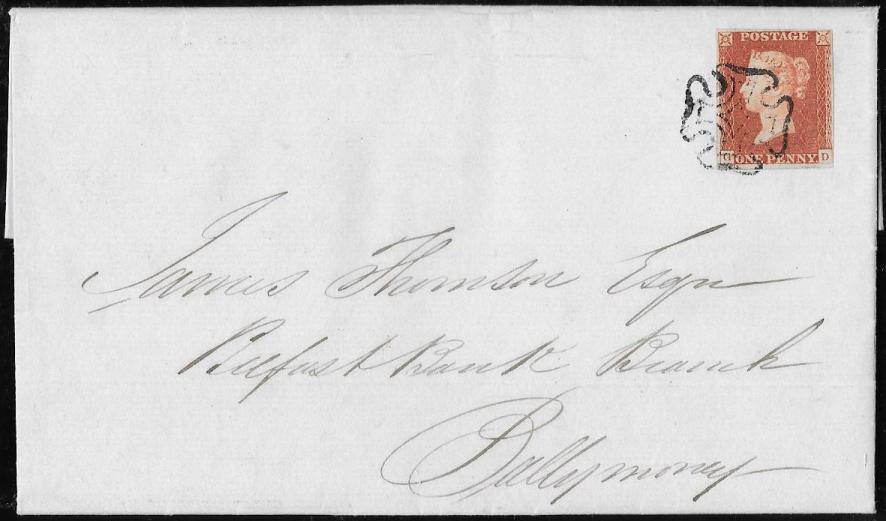 POSTAGE
ONE PENNY
D
James Thomson Esqr
Belfast Bank Branch
Ballymoney